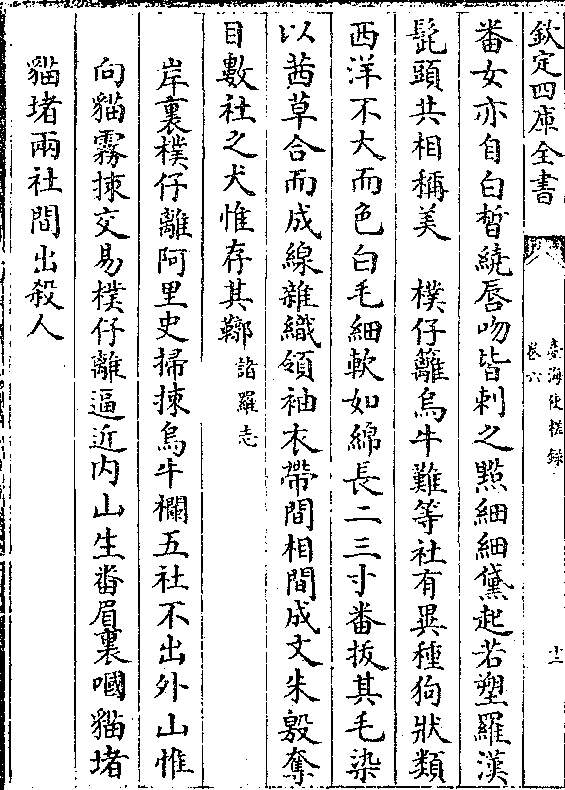 欽定四庫全書
臺海使槎録
卷六
十二
番女亦自白晳繞唇吻皆刺之㸃細細黛起若塑羅漢
髭頭共相稱美　樸仔籬烏牛難等社有異種狗狀類
西洋不大而色白毛細軟如綿長二三寸番拔其毛染
以茜草合而成線雜織領袖衣帶間相間成文朱殷奪
目數社之犬惟存其鞹諸羅志
岸裏樸仔離阿里史掃捒烏牛欄五社不出外山惟
向貓霧捒交易樸仔離逼近内山生番眉裏嘓貓堵
貓堵兩社間出殺人